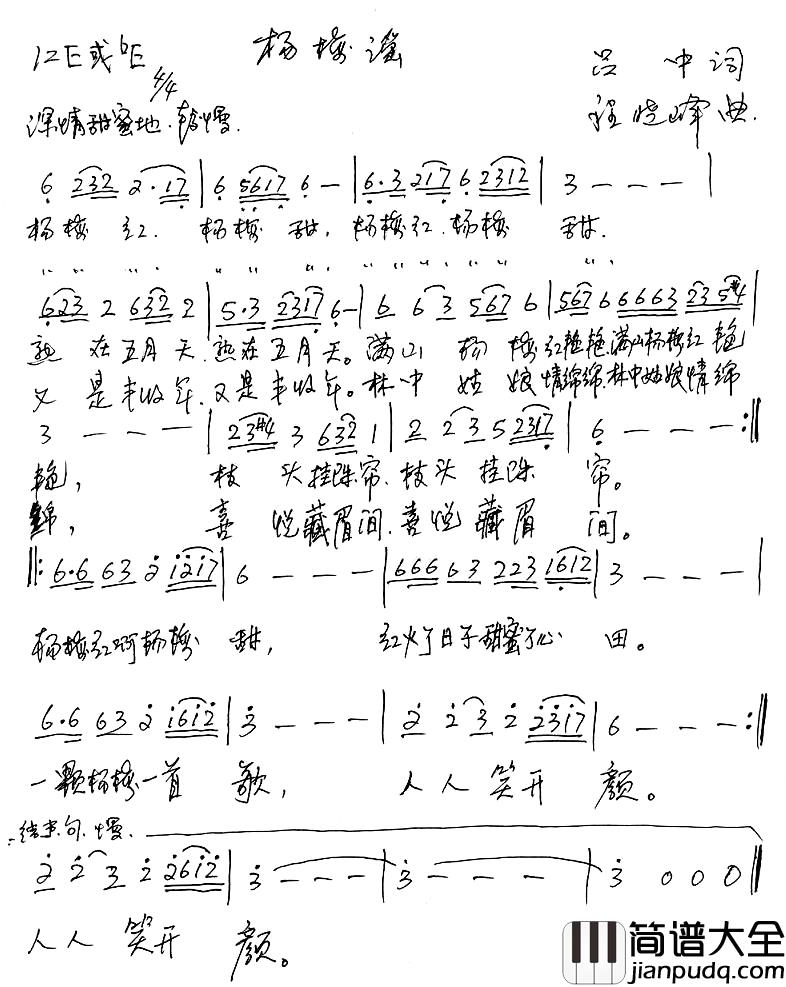 杨梅谣
1=E或ᵇE 4/4
吕 中词
程晓峰曲.
深情甜蜜地.较慢.
6 232 2·17 | 6 5617 6 — | 6·3 217 6 2312 | 3 — — — |
杨梅 红. 杨梅 甜, 杨梅红.杨梅 甜.
623 2 632 2 | 5·3 2317 6 — | 6 6 3 567 6 | 567 6 6663 235#4 |
熟 在五月天.熟在五月天。满山 杨 梅红艳艳满山杨梅红艳
又 是丰收年.又是丰收年。林中 姑 娘情绵绵.林中姑娘情绵
3 — — — | 23#4 3 632 1 | 2 2 3 5 2317 | 6 — — — :‖
艳, 枝 头挂珠帘.枝头 挂珠 帘。
绵, 喜 悦藏眉间.喜悦 藏眉 间。
‖: 6·6 63 2 1217 | 6 — — — | 666 63 223 1612 | 3 — — — |
杨梅红啊杨梅 甜, 红火了日子甜蜜了心 田。
6·6 63 2 1612 | 3 — — — | 2 2 3 2 2317 | 6 — — — :‖
一颗杨梅一首 歌, 人人 笑开 颜。
结束句.慢.
2 2 3 2 2612 | 3 — — — | 3 — — — | 3 0 0 0 ‖
人人 笑开 颜。
简谱大全
jianpudq.com